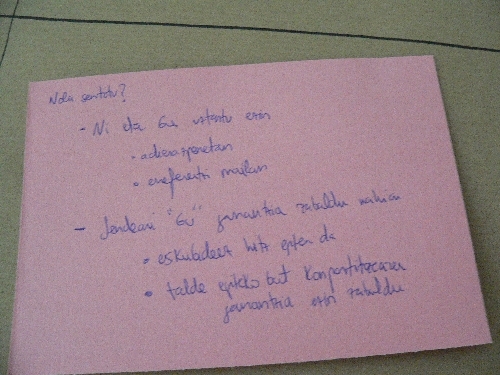 Nola sentitu?
- Ni eta Gu ustartu ezin
• adierazpenetan
• erreferentzi mailan
- Jendeari "Gu" garrantzia zabaldu nahian
• eskubideez hitz egiten da
• talde egiteko bat konpartitzearen
garrantzia ezin zabaldu